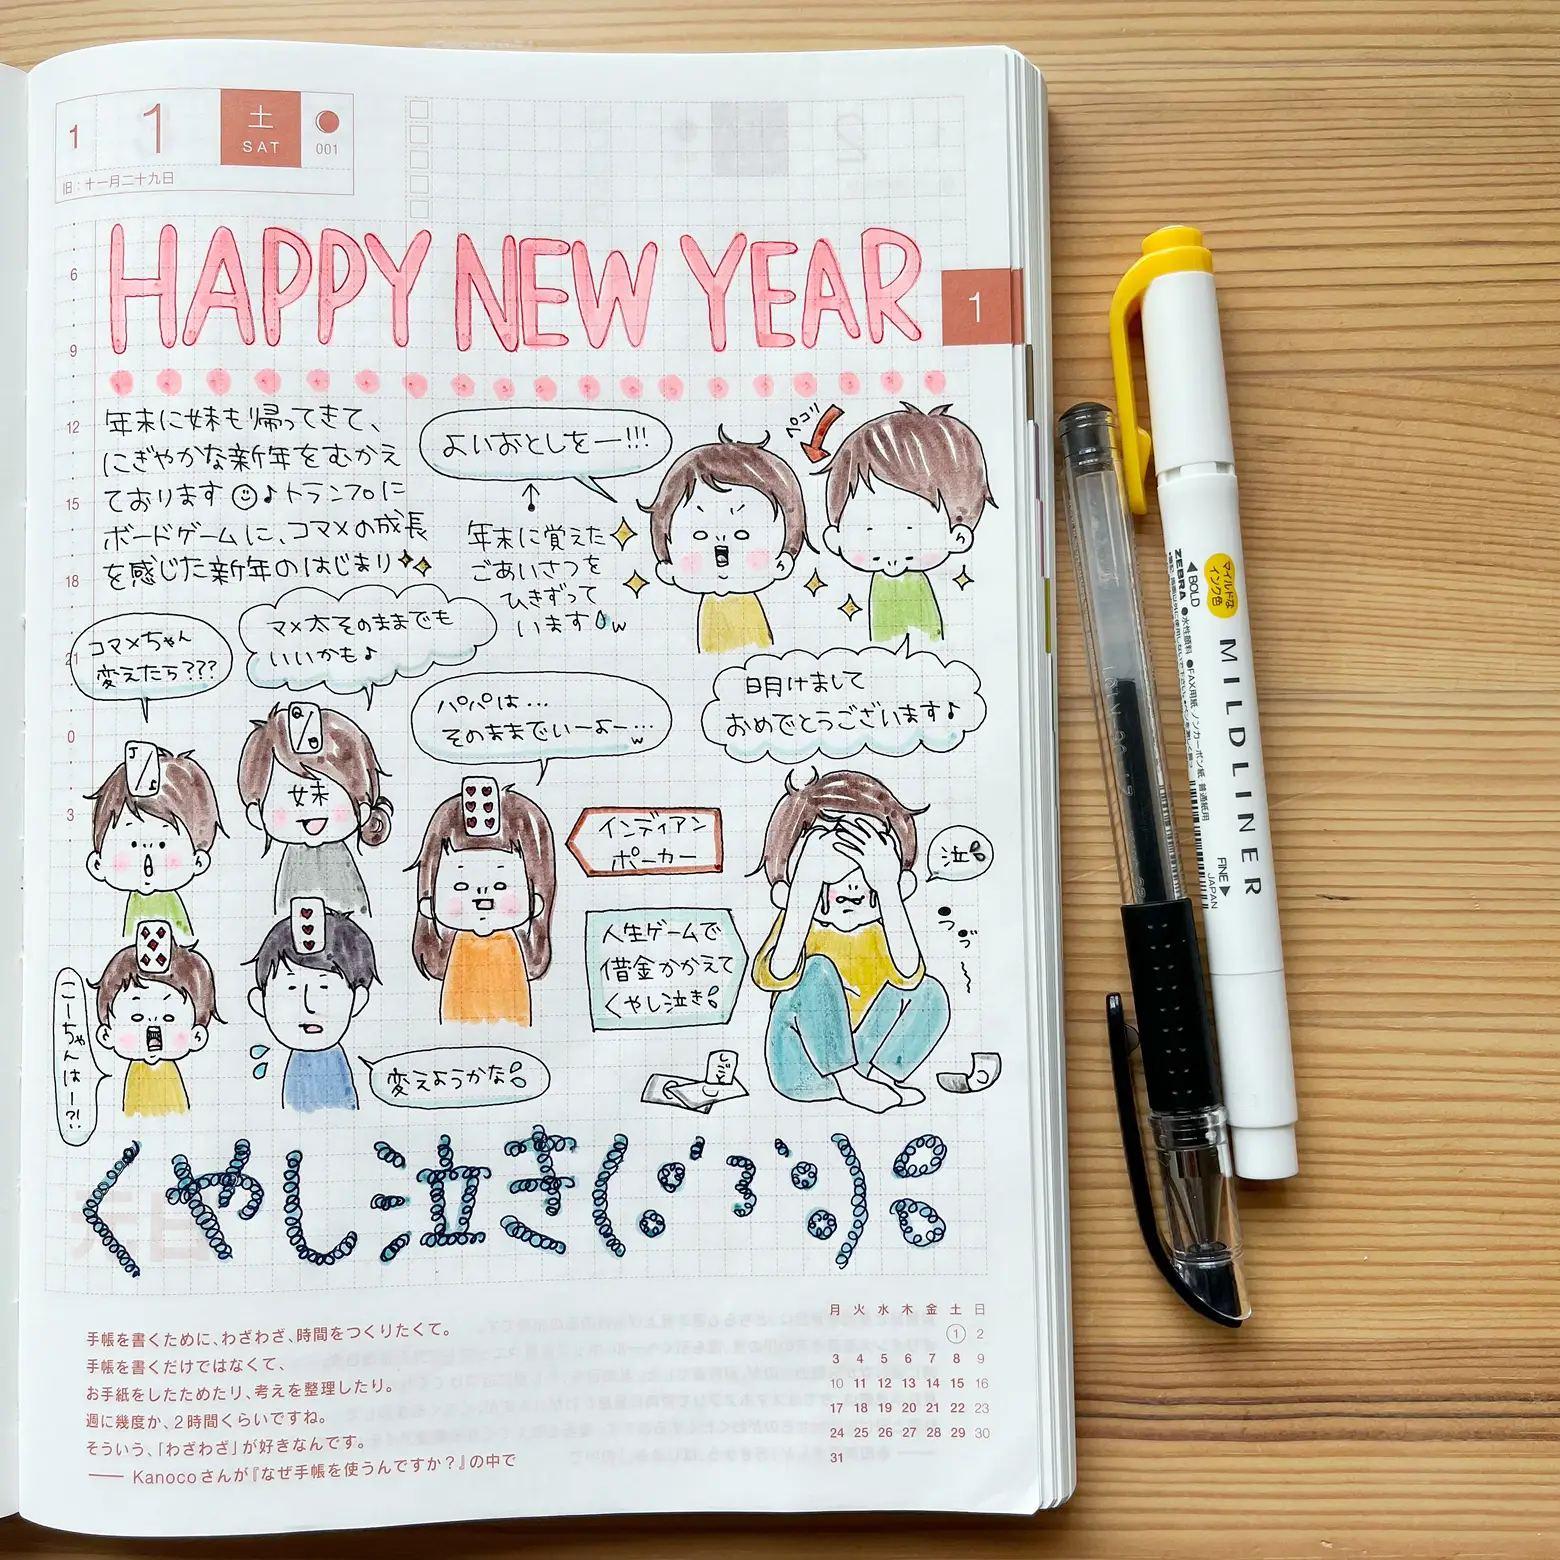 1 1 土 SAT 001
旧：十一月二十九日
HAPPY NEW YEAR
1
6
9
12
15
18
21
0
3
年末に妹も帰ってきて、
にぎやかな新年をむかえ
ております☺♪トランプに
ボードゲームに、コマメの成長
を感じた新年のはじまり
よいおとしをー!!!
↑
年末に覚えた
ごあいさつを
ひきずって
います w
ペコリ
明けまして
おめでとうございます♪
コマメちゃん
変えたら???
マメ太そのままでも
いいかも♪
パパは…
そのままでいーよー…w
J
Q
妹
インディアン
ポーカー
こーちゃんはー?!
変えようかな
人生ゲームで
借金かかえて
くやし泣き
泣
しごと
くやし泣き(
元日
手帳を書くために、わざわざ、時間をつくりたくて。
手帳を書くだけではなくて、
お手紙をしたためたり、考えを整理したり。
週に幾度か、2時間くらいですね。
そういう、「わざわざ」が好きなんです。
── Kanocoさんが『なぜ手帳を使うんですか？』の中で
月 火 水 木 金 土 日
1 2
3 4 5 6 7 8 9
10 11 12 13 14 15 16
17 18 19 20 21 22 23
24 25 26 27 28 29 30
31
◀BOLD
ZEBRA
マイルドな
インク色
MILDLINER
●水性顔料 ●FAX用紙 ノンカーボン紙 普通紙用
FINE▶
JAPAN